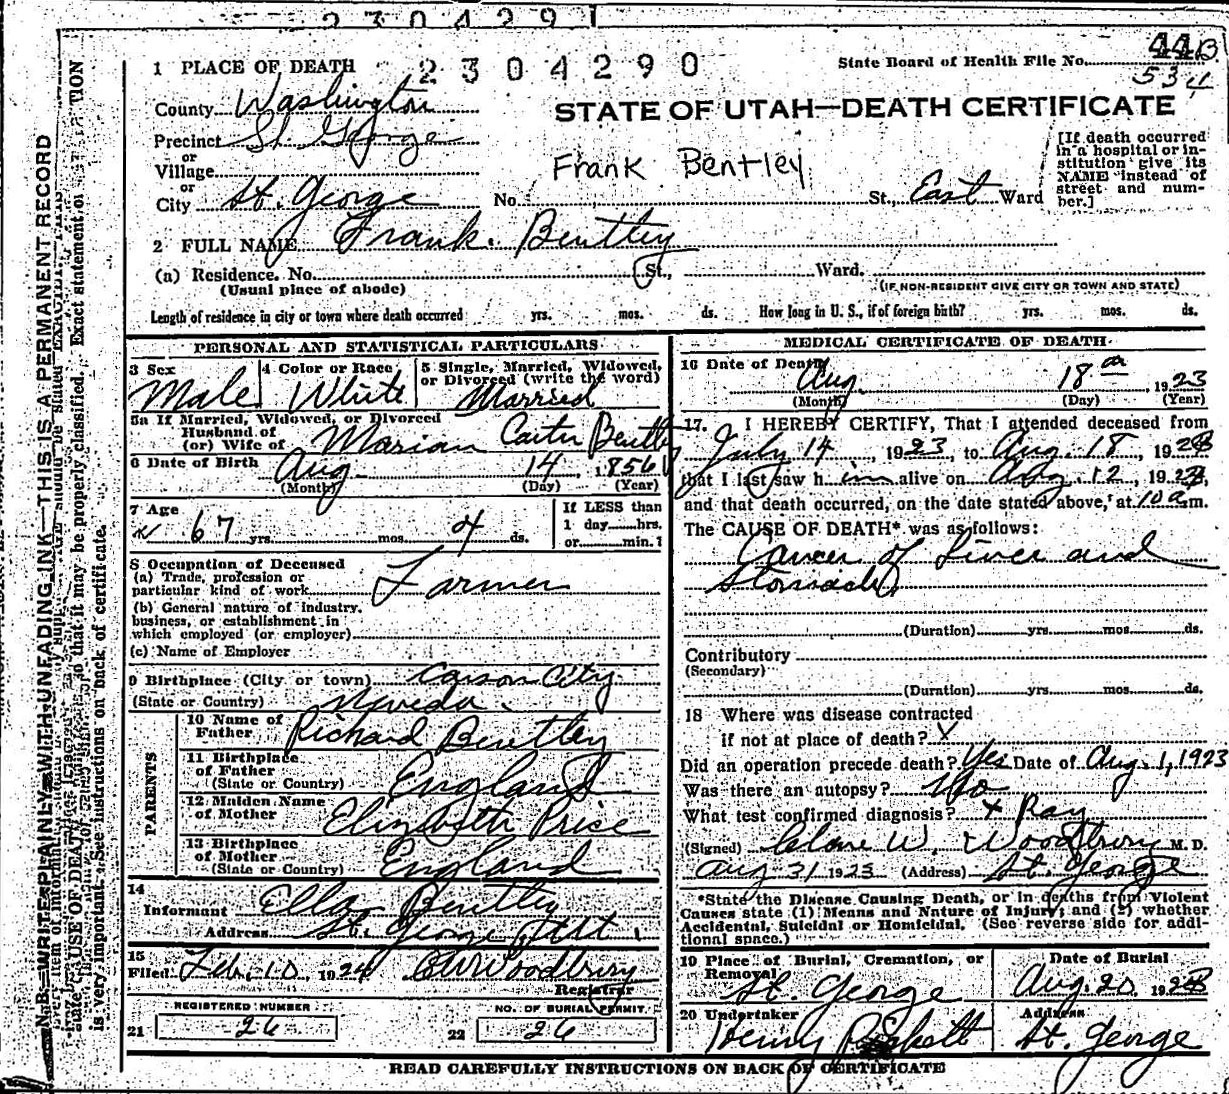 2304291
1 PLACE OF DEATH 2304290 State Board of Health File No. 44B
534
County Washington
STATE OF UTAH—DEATH CERTIFICATE
Precinct St. George
or
Village
or
City St. George No. St., East Ward
Frank Bentley
[If death occurred
in a hospital or in-
stitution give its
NAME instead of
street and num-
ber.]
2 FULL NAME Frank. Bentley
(a) Residence. No. St., Ward.
(Usual place of abode) (IF NON-RESIDENT GIVE CITY OR TOWN AND STATE)
Length of residence in city or town where death occurred yrs. mos. ds. How long in U. S., if of foreign birth? yrs. mos. ds.
PERSONAL AND STATISTICAL PARTICULARS
3 Sex 4 Color or Race 5 Single, Married, Widowed,
or Divorced (write the word)
Male White Married
5a If Married, Widowed, or Divorced
Husband of
(or) Wife of Marian Carter Bentley
6 Date of Birth Aug 14 1856
(Month) (Day) (Year)
7 Age If LESS than
67 yrs. mos. 4 ds. 1 day hrs.
or min.?
8 Occupation of Deceased
(a) Trade, profession or
particular kind of work Farmer
(b) General nature of industry,
business, or establishment in
which employed (or employer)
(c) Name of Employer
9 Birthplace (City or town) Carson City
(State or Country) Nevada.
PARENTS
10 Name of
Father Richard Bentley
11 Birthplace
of Father
(State or Country) England
12 Maiden Name
of Mother Elizabeth Price
13 Birthplace
of Mother
(State or Country) England
14
Informant Ella Bentley
Address St. George Utah
15
Filed Feb. 10 1924 C W Woodbury
Registrar
REGISTERED NUMBER NO. OF BURIAL PERMIT
21 26 22 26
MEDICAL CERTIFICATE OF DEATH
16 Date of Death Aug. 18 1923
(Month) (Day) (Year)
17. I HEREBY CERTIFY, That I attended deceased from
July 14, 1923, to Aug. 18, 1923
that I last saw h im alive on Aug. 12, 1923,
and that death occurred, on the date stated above, at 10 a.m.
The CAUSE OF DEATH* was as follows:
Cancer of Liver and
Stomach
(Duration) yrs. mos. ds.
Contributory
(Secondary)
(Duration) yrs. mos. ds.
18 Where was disease contracted
if not at place of death? X
Did an operation precede death? Yes Date of Aug. 1, 1923
Was there an autopsy? No
What test confirmed diagnosis? X Ray
(Signed) Clare W. Woodbury M. D.
Aug 31 1923 (Address) St. George
*State the Disease Causing Death, or in deaths from Violent
Causes state (1) Means and Nature of Injury; and (2) whether
Accidental, Suicidal or Homicidal. (See reverse side for addi-
tional space.)
19 Place of Burial, Cremation, or
Removal Date of Burial
St. George Aug. 20 1923
20 Undertaker Address
Henry St. George
READ CAREFULLY INSTRUCTIONS ON BACK OF CERTIFICATE
N. B.—WRITE PLAINLY WITH UNFADING INK—THIS IS A PERMANENT RECORD
state CAUSE OF DEATH so that it may be properly classified. Exact statement of
is very important. See instructions on back of certificate.